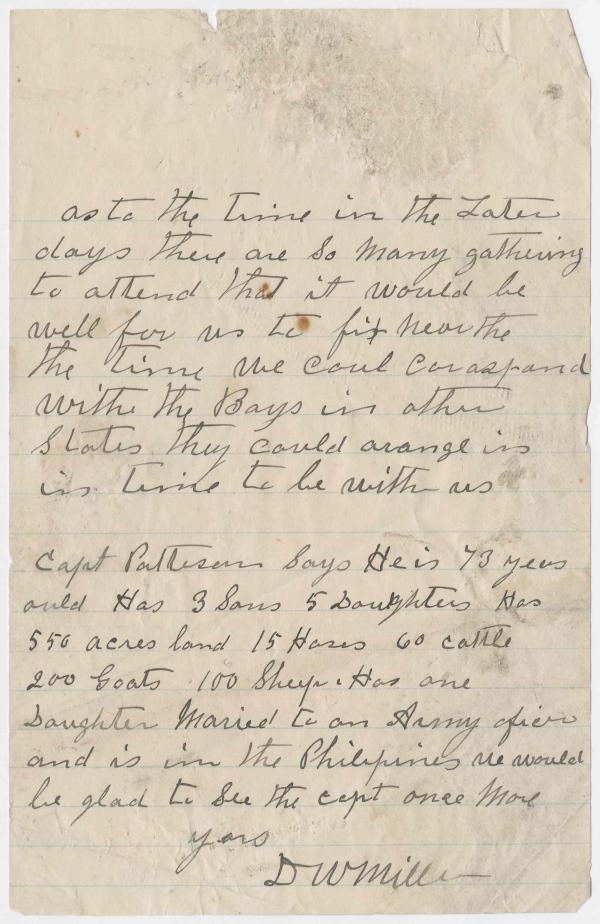 as to the time in the Later
days there are so many gathering
to attend that it would be
well for us to fix near the
the time we coul coraspond
withe the Boys in other
States they could arange in
in time to be with us
Capt Patteson Says He is 73 years
ould Has 3 Sons 5 Daughters Has
550 acres land 15 Hoses 60 cattle
200 Goats 100 Sheep. Has one
Daughter Maried to an Army oficer
and is inn the Philipines we would
be glad to See the capt once More
yors
D W Miller